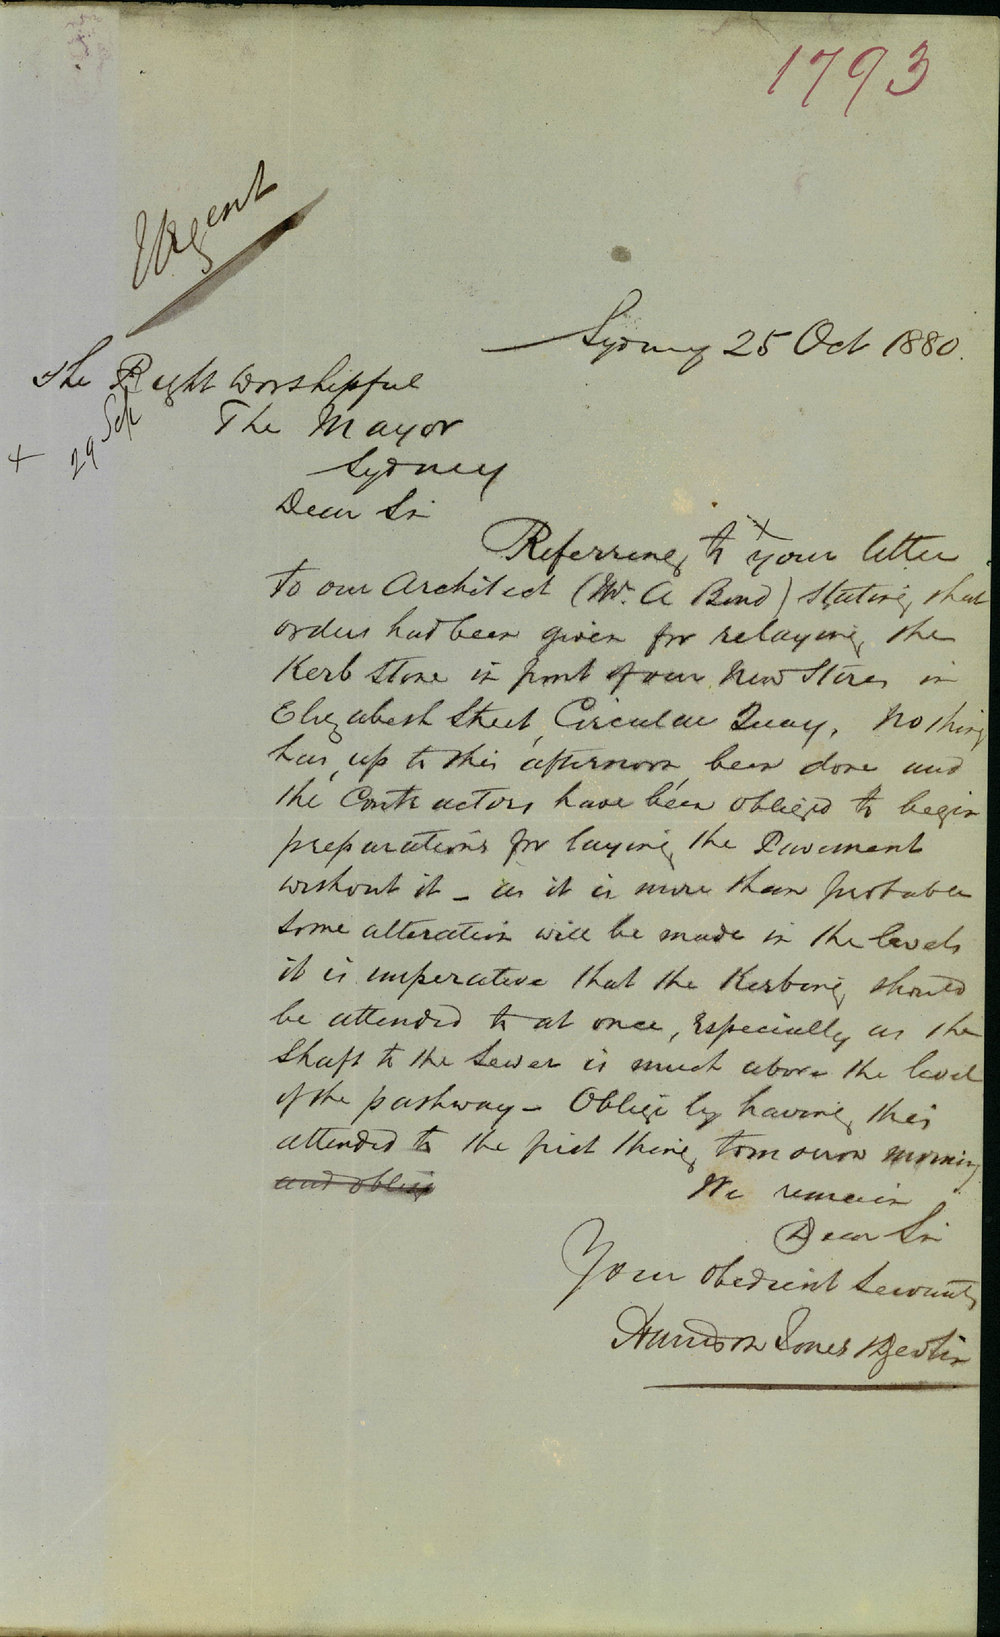 1793
Urgent
Sydney 25 Oct 1880.
The Right Worshipful
The Mayor
Sydney
+ 29 Sep
Dear Sir
Referring to x your letter
to our Architect (Mr. A Bond) stating that
orders had been given for relaying the
Kerb Stone in front of our New Stores in
Elizabeth Street, Circular Quay, Nothing
has, up to this afternoon, been done and
the Contractors have been obliged to begin
preparations for laying the Pavement
without it - as it is more than probable
some alteration will be made in the levels
it is imperative that the Kerbing should
be attended to at once, Especially as the
Shaft to the Sewer is much above the level
of the pathway - Oblige by having this
attended to the first thing tomorrow morning
and oblige
We remain
Dear Sir
Your obedient Servants
Harrison Jones & Devlin